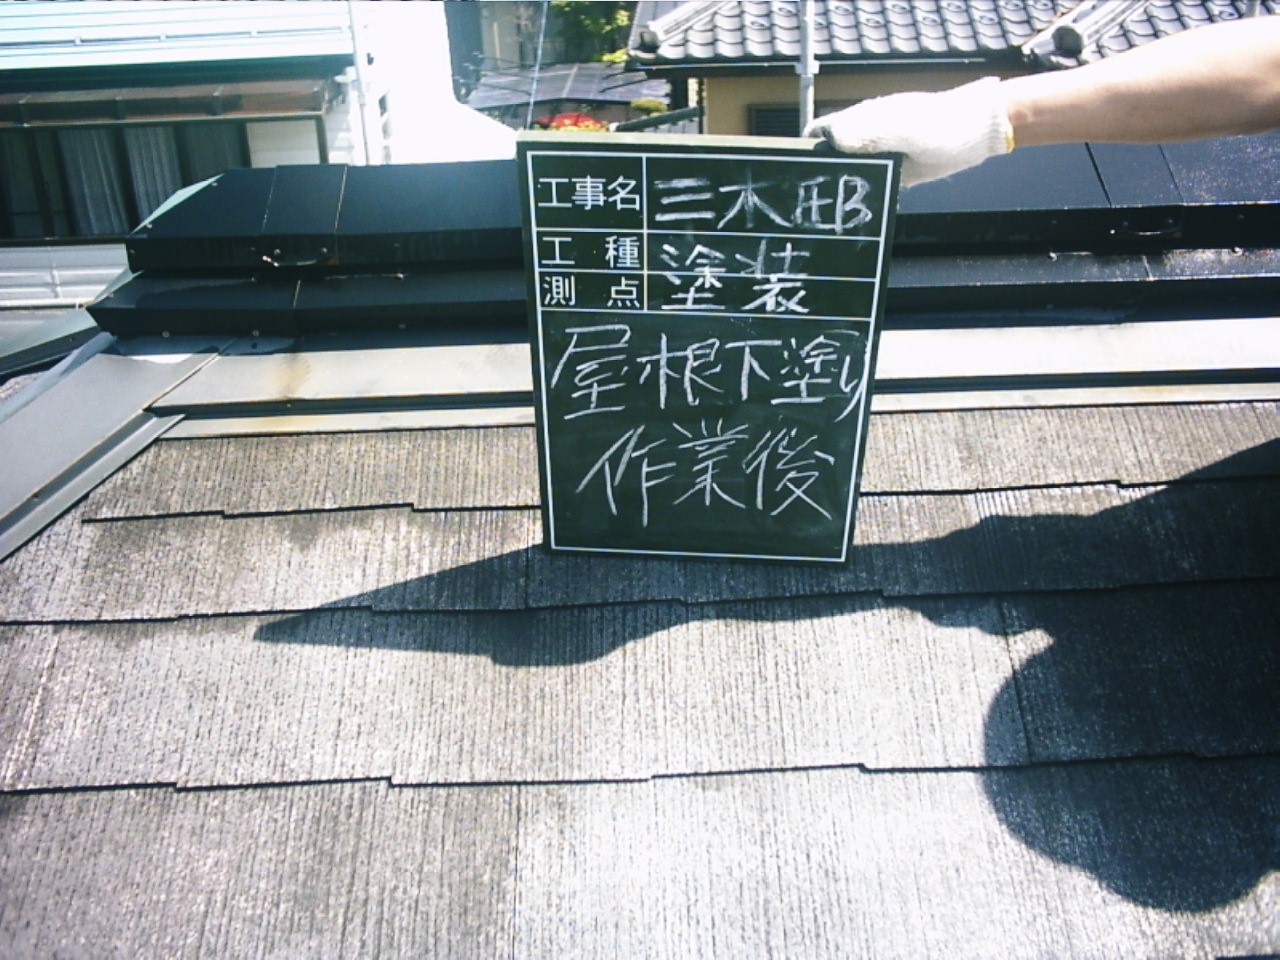 工事名 三木邸
工種 塗装
測点
屋根下塗り
作業後